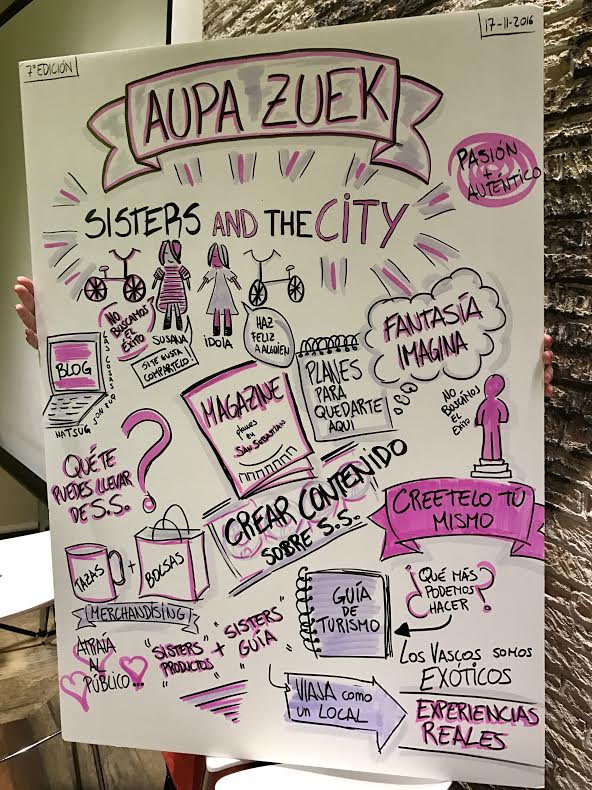 7ª EDICIÓN
17-11-2016
AUPA ZUEK
PASIÓN
+
AUTÉNTICO
SISTERS AND THE CITY
NO
BUSCAMOS
EL
ÉXITO
SUSANA
IDOIA
SI TE GUSTA
COMPÁRTELO
HAZ
FELIZ
A ALGUIEN
BLOG
LAS COSAS
SON
FANTASÍA
IMAGINA
PLANES
PARA
QUEDARTE
AQUÍ
MAGAZINE
planes en
SAN SEBASTIAN
NO
BUSCAMOS
EL
ÉXITO
QUÉ TE
PUEDES LLEVAR
DE S.S.
?
CREAR CONTENIDO
SOBRE S.S.
CREETELO TÚ
MISMO
TAZAS
+
BOLSAS
MERCHANDISING
GUÍA
DE
TURISMO
¿QUÉ MÁS
PODEMOS
HACER?
ATRAÍA
AL
PÚBLICO...
"SISTERS
PRODUCTOS"
+
"SISTERS
GUÍA"
LOS VASCOS SOMOS
EXÓTICOS
VIAJA como
un LOCAL
EXPERIENCIAS
REALES